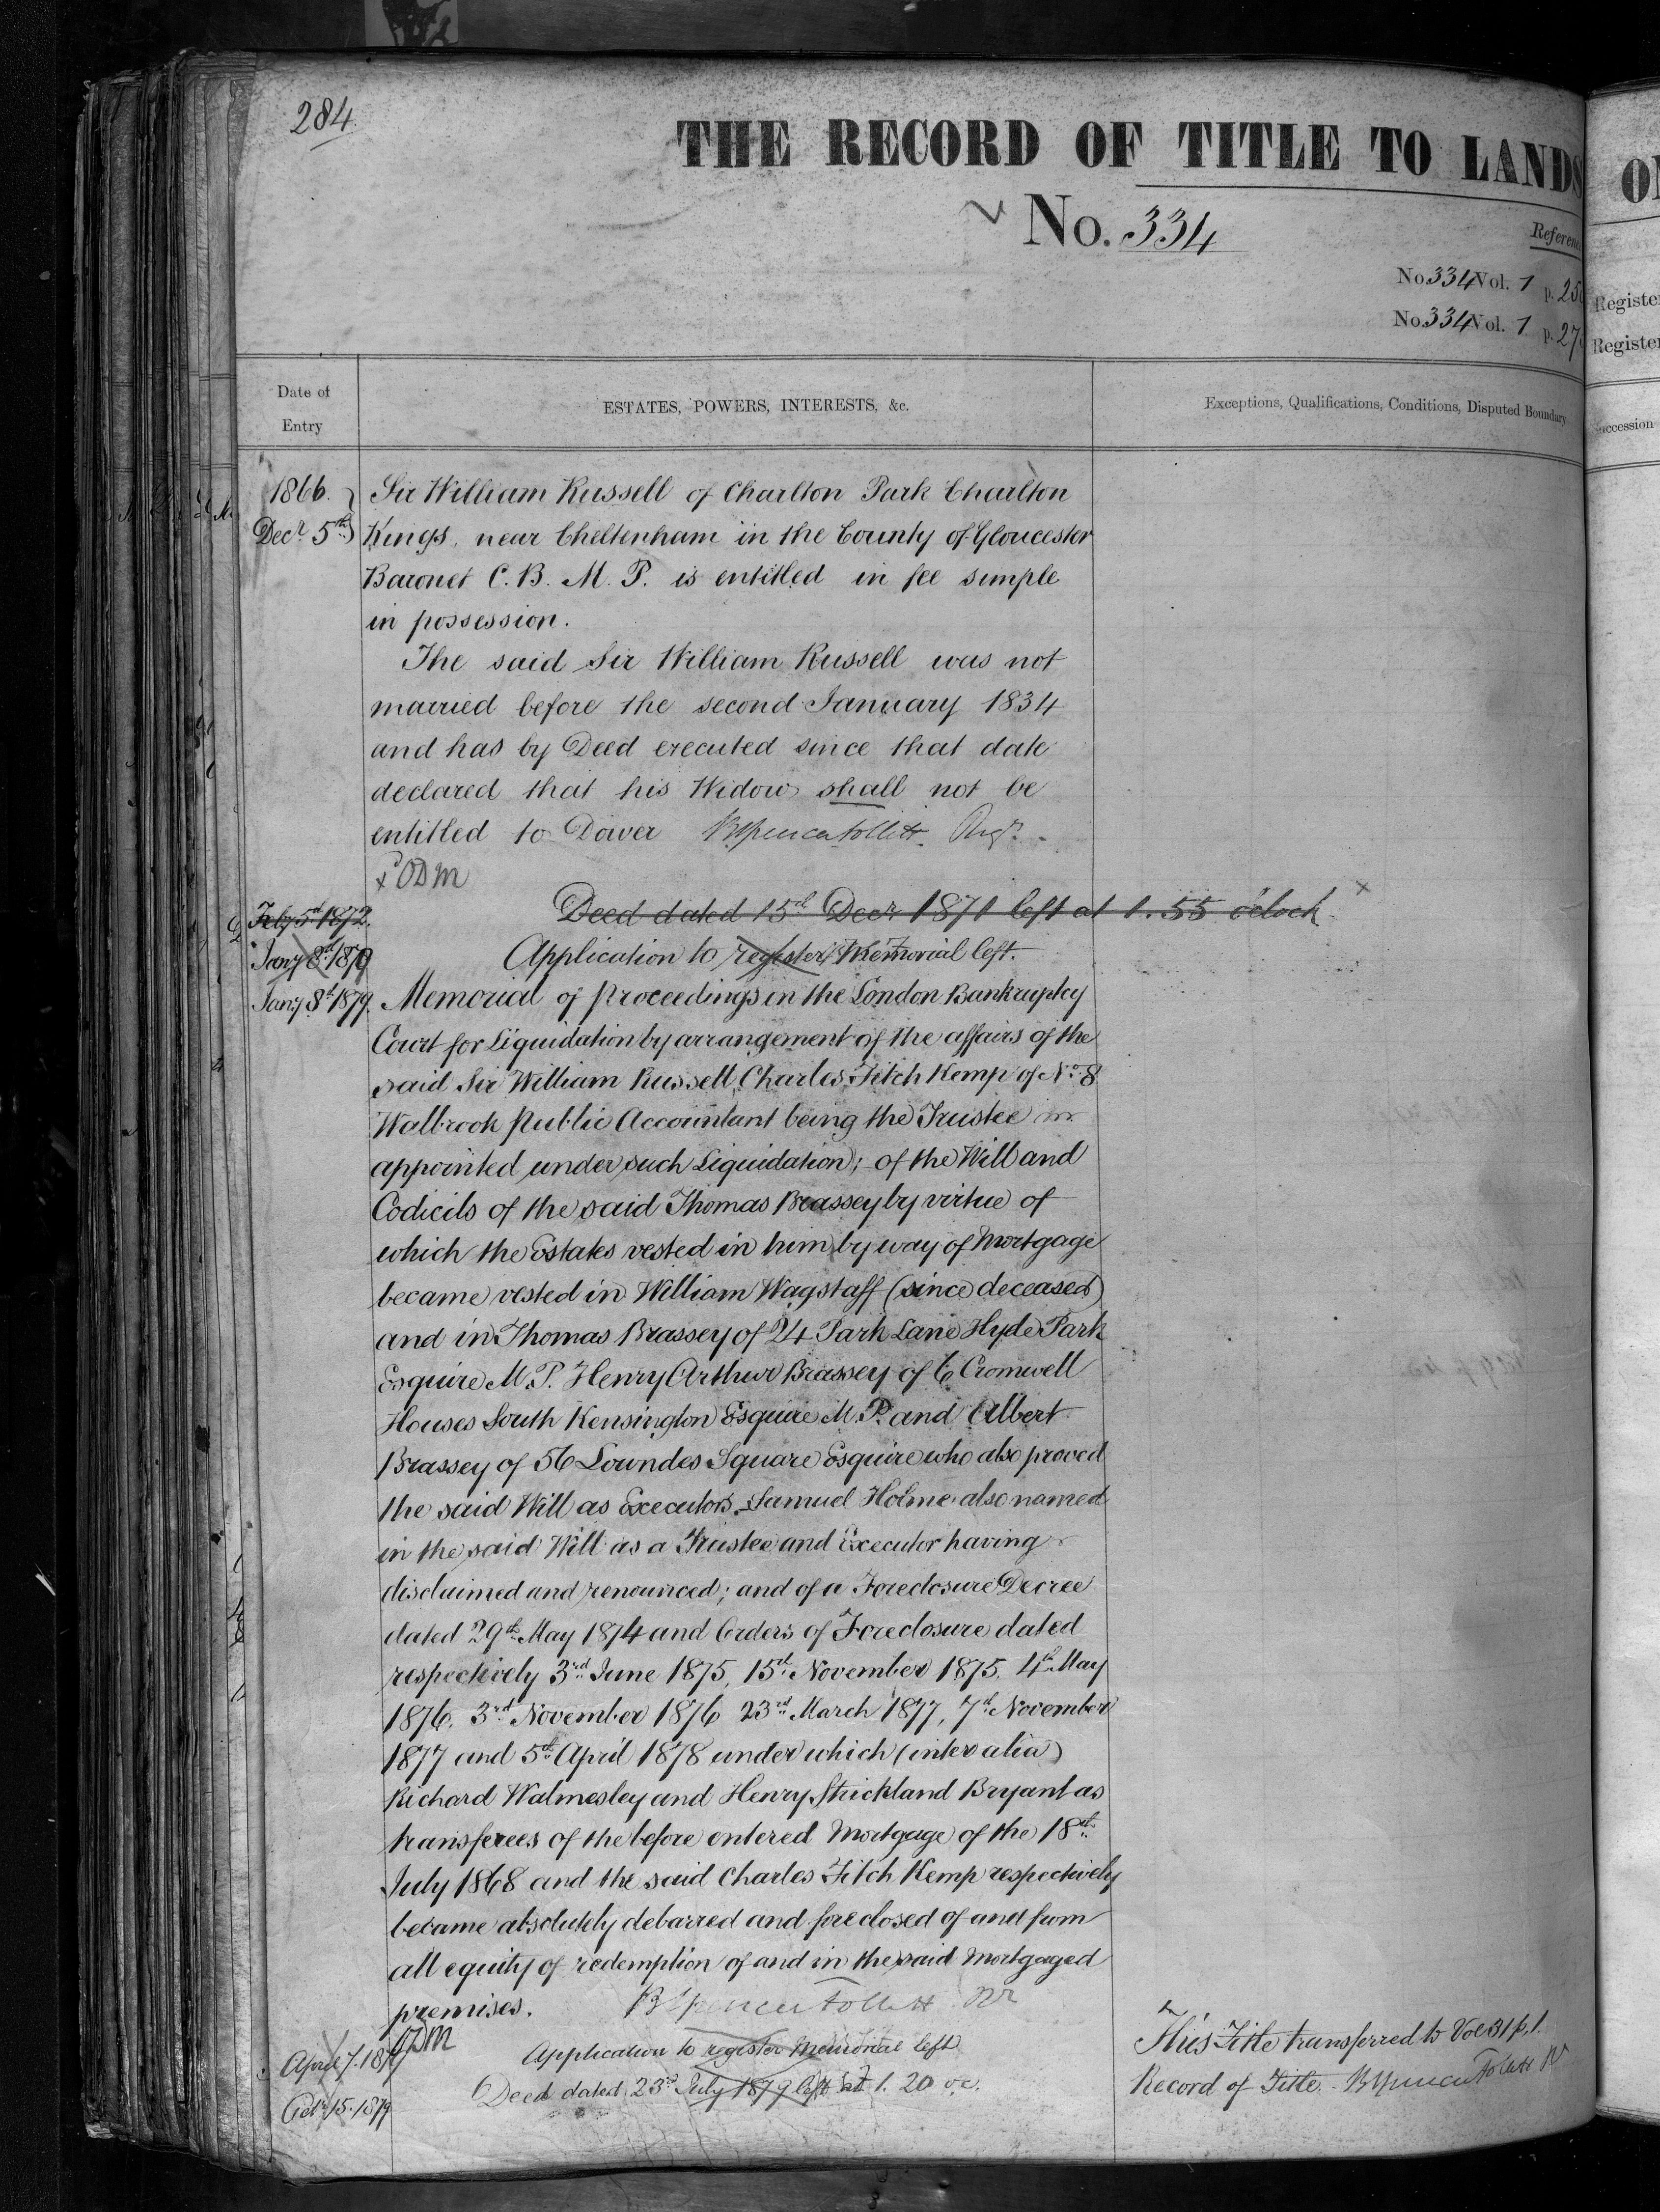 284
THE RECORD OF TITLE TO LANDS
No. 334
No. 334 Vol. 1 p. 25
No. 334 Vol. 1 p. 27
Register
Register
Date of
Entry
ESTATES, POWERS, INTERESTS, &c.
Exceptions, Qualifications, Conditions, Disputed Boundary
1866.
Decr. 5th
Sir William Russell of Charlton Park Charlton
Kings, near Cheltenham in the County of Gloucester
Baronet C. B. M. P. is entitled in fee simple
in possession.
The said Sir William Russell was not
married before the second January 1834
and has by Deed executed since that date
declared that his Widow shall not be
entitled to Dower
ODM
Feby 5th 1872. Deed dated 15th Decr 1871 left at 1.55 o'clock
Jany 8th 1879 Application to register Memorial left.
Jany 8th 1879. Memorial of proceedings in the London Bankruptcy
Court for Liquidation by arrangement of the affairs of the
said Sir William Russell, Charles Fitch Kemp of No. 8
Walbrook Public Accountant being the Trustee
appointed under such Liquidation; of the Will and
Codicils of the said Thomas Brassey by virtue of
which the Estates vested in him by way of Mortgage
became vested in William Wagstaff (since deceased)
and in Thomas Brassey of 24 Park Lane Hyde Park
Esquire M. P. Henry Arthur Brassey of 6 Cromwell
Houses South Kensington Esquire M. P. and Albert
Brassey of 56 Lowndes Square Esquire who also proved
the said Will as Executors, Samuel Holme also named
in the said Will as a Trustee and Executor having
disclaimed and renounced; and of a Foreclosure Decree
dated 29th May 1874 and Orders of Foreclosure dated
respectively 3rd June 1875, 15th November 1875, 4th May
1876, 3rd November 1876 23rd March 1877, 7th November
1877 and 5th April 1878 under which (inter alia)
Richard Walmesley and Henry Strickland Bryant as
transferees of the before entered Mortgage of the 18th
July 1868 and the said Charles Fitch Kemp respectively
became absolutely debarred and foreclosed of and from
all equity of redemption of and in the said Mortgaged
premises.
ODM
April 7. 1879 Application to register Memorial left
Octr 15. 1879 Deed dated 23rd July 1879 left at 1. 20 o.c.
This Title transferred to Vol 31 p. 1.
Record of Title